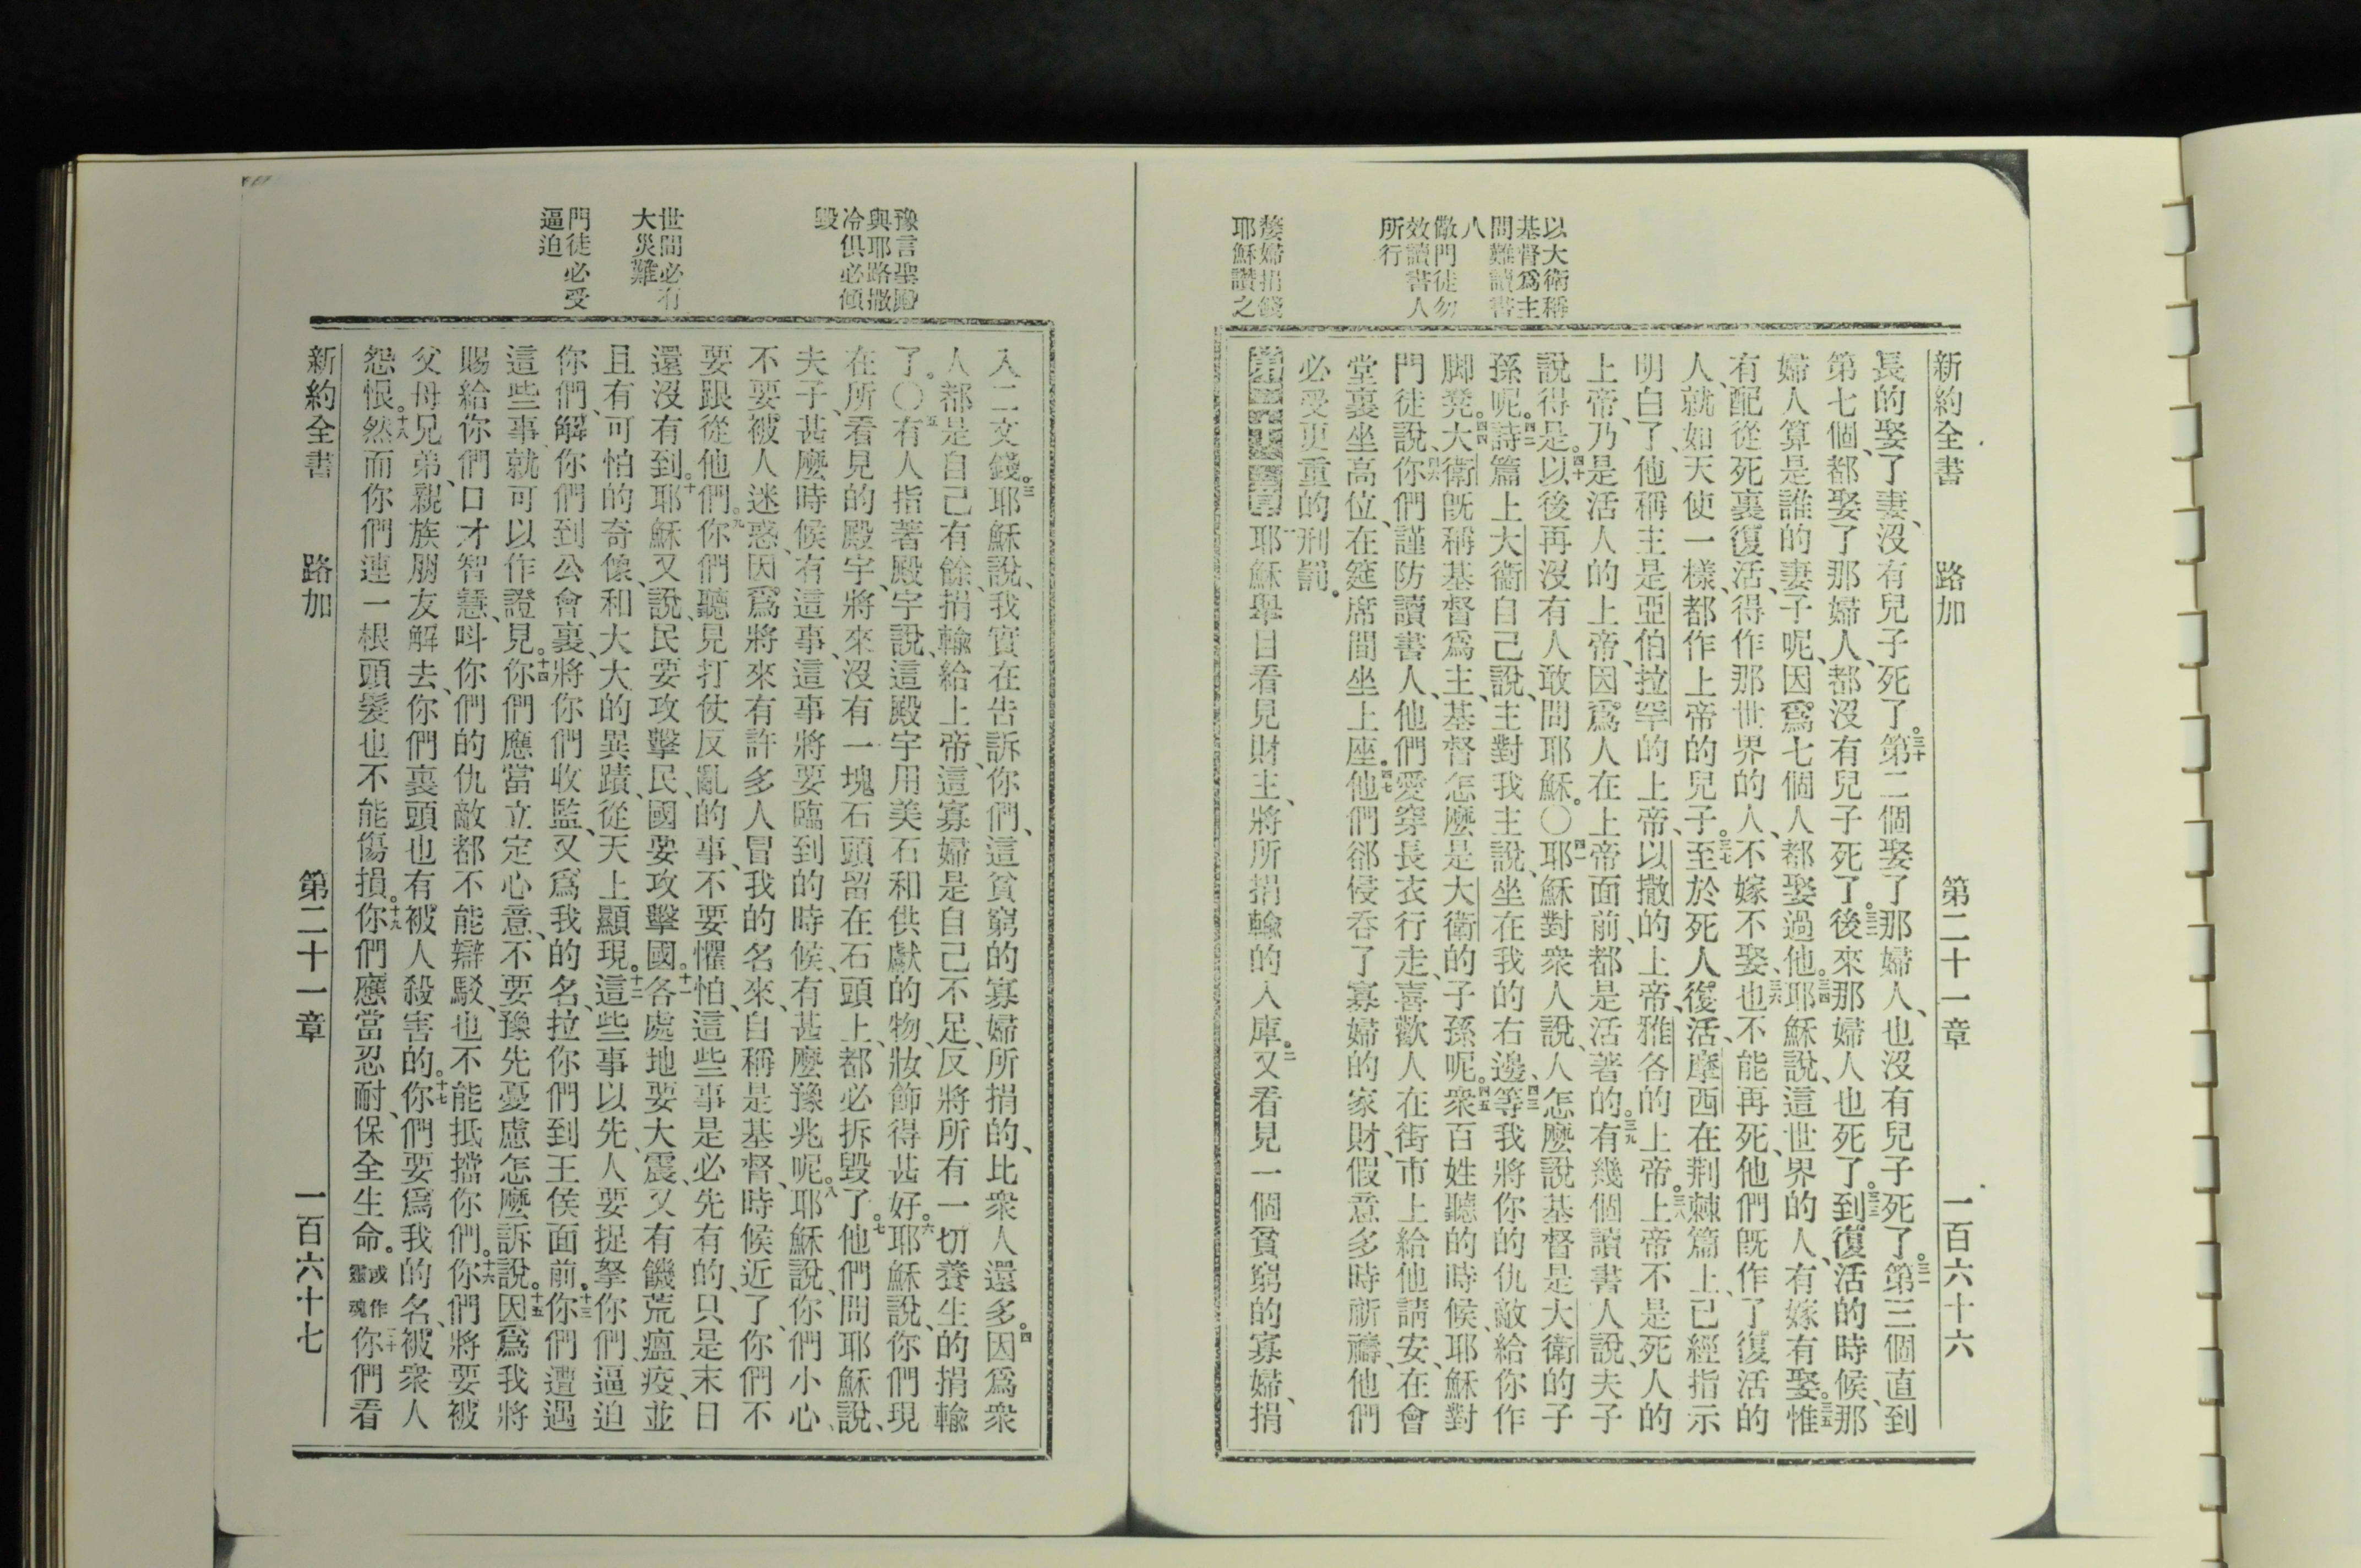 新約全書　路加　第二十一章　一百六十六
長的娶了妻、沒有兒子死了。三十第二個娶了那婦人、也沒有兒子死了。三一第三個直到
第七個、都娶了那婦人、都沒有兒子死了。三二後來那婦人也死了。三三到復活的時候、那
婦人算是誰的妻子呢、因爲七個人都娶過他。三四耶穌說、這世界的人、有嫁有娶。三五惟
有配從死裏復活、得作那世界的人、不嫁不娶、三六也不能再死、他們旣作了復活的
人、就如天使一樣、都作上帝的兒子。三七至於死人復活、摩西在荆棘篇上、已經指示
明白了、他稱主是亞伯拉罕的上帝、以撒的上帝、雅各的上帝。三八上帝不是死人的
上帝、乃是活人的上帝、因爲人在上帝面前、都是活著的。三九有幾個讀書人說、夫子
說得是。四十以後再沒有人敢問耶穌。〇四一耶穌對衆人說、人怎麼說基督是大衛的子
孫呢。四二詩篇上大衞自己說、主對我主說、坐在我的右邊、四三等我將你的仇敵給你作
脚凳。四四大衛旣稱基督爲主、基督怎麼是大衛的子孫呢。四五衆百姓聽的時候、耶穌對
門徒說、四六你們謹防讀書人、他們愛穿長衣行走、喜歡人在街市上給他請安、在會
堂裏坐高位、在筵席間坐上座。四七他們郤侵吞了寡婦的家財、假意多時祈禱、他們
必受更重的刑罰。
第二十一章 一耶穌舉目看見財主、將所捐輸的入庫。二又看見一個貧窮的寡婦、捐
以大衛稱
基督爲主
問難讀書
八
儆門徒勿
效讀書人
所行
嫠婦捐錢
耶穌讚之
入二文錢。三耶穌說、我實在告訴你們、這貧窮的寡婦所捐的、比衆人還多。四因爲衆
人都是自己有餘、捐輸給上帝、這寡婦是自己不足、反將所有一切養生的捐輸
了。〇五有人指著殿宇說、這殿宇用美石和供獻的物、妝飾得甚好。六耶穌說、你們現
在所看見的殿宇、將來沒有一塊石頭留在石頭上、都必拆毀了。七他們問耶穌說、
夫子、甚麼時候有這事、這事將要臨到的時候、有甚麼豫兆呢。八耶穌說、你們小心、
不要被人迷惑、因爲將來有許多人冒我的名來、自稱是基督、時候近了、你們不
要跟從他們。九你們聽見打仗反亂的事、不要懼怕、這些事是必先有的、只是末日
還沒有到。十耶穌又說、民要攻擊民、國要攻擊國。十一各處地要大震、又有饑荒瘟疫、並
且有可怕的奇像、和大大的異蹟、從天上顯現。十二這些事以先、人要捉拏你們、逼迫
你們、解你們到公會裏、將你們收監、又爲我的名、拉你們到王侯面前。十三你們遭遇
這些事就可以作證見。十四你們應當立定心意、不要豫先憂慮怎麼訴說。十五因爲我將
賜給你們口才智慧、呌你們的仇敵都不能辯駁、也不能抵擋你們。十六你們將要被
父母兄弟、親族朋友解去、你們裏頭也有被人殺害的。十七你們要爲我的名、被衆人
怨恨。十八然而你們連一根頭髮也不能傷損。十九你們應當忍耐、保全生命。或作靈魂二十你們看
新約全書　路加　第二十一章　一百六十七
豫言聖殿
與耶路撒
冷俱必傾
毀
世間必有
大災難
門徒必受
逼迫